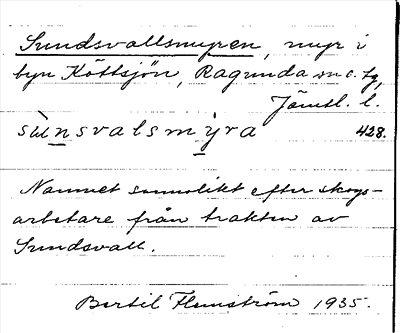 Sundsvallsmyren, myr i
byn Köttsjön, Ragunda sn o. tg,
Jämtl. l.
sùnsvalsmỳra 428.
Namnet sannolikt efter skogs-
arbetare från trakten av
Sundsvall.
Bertil Flemström 1935.